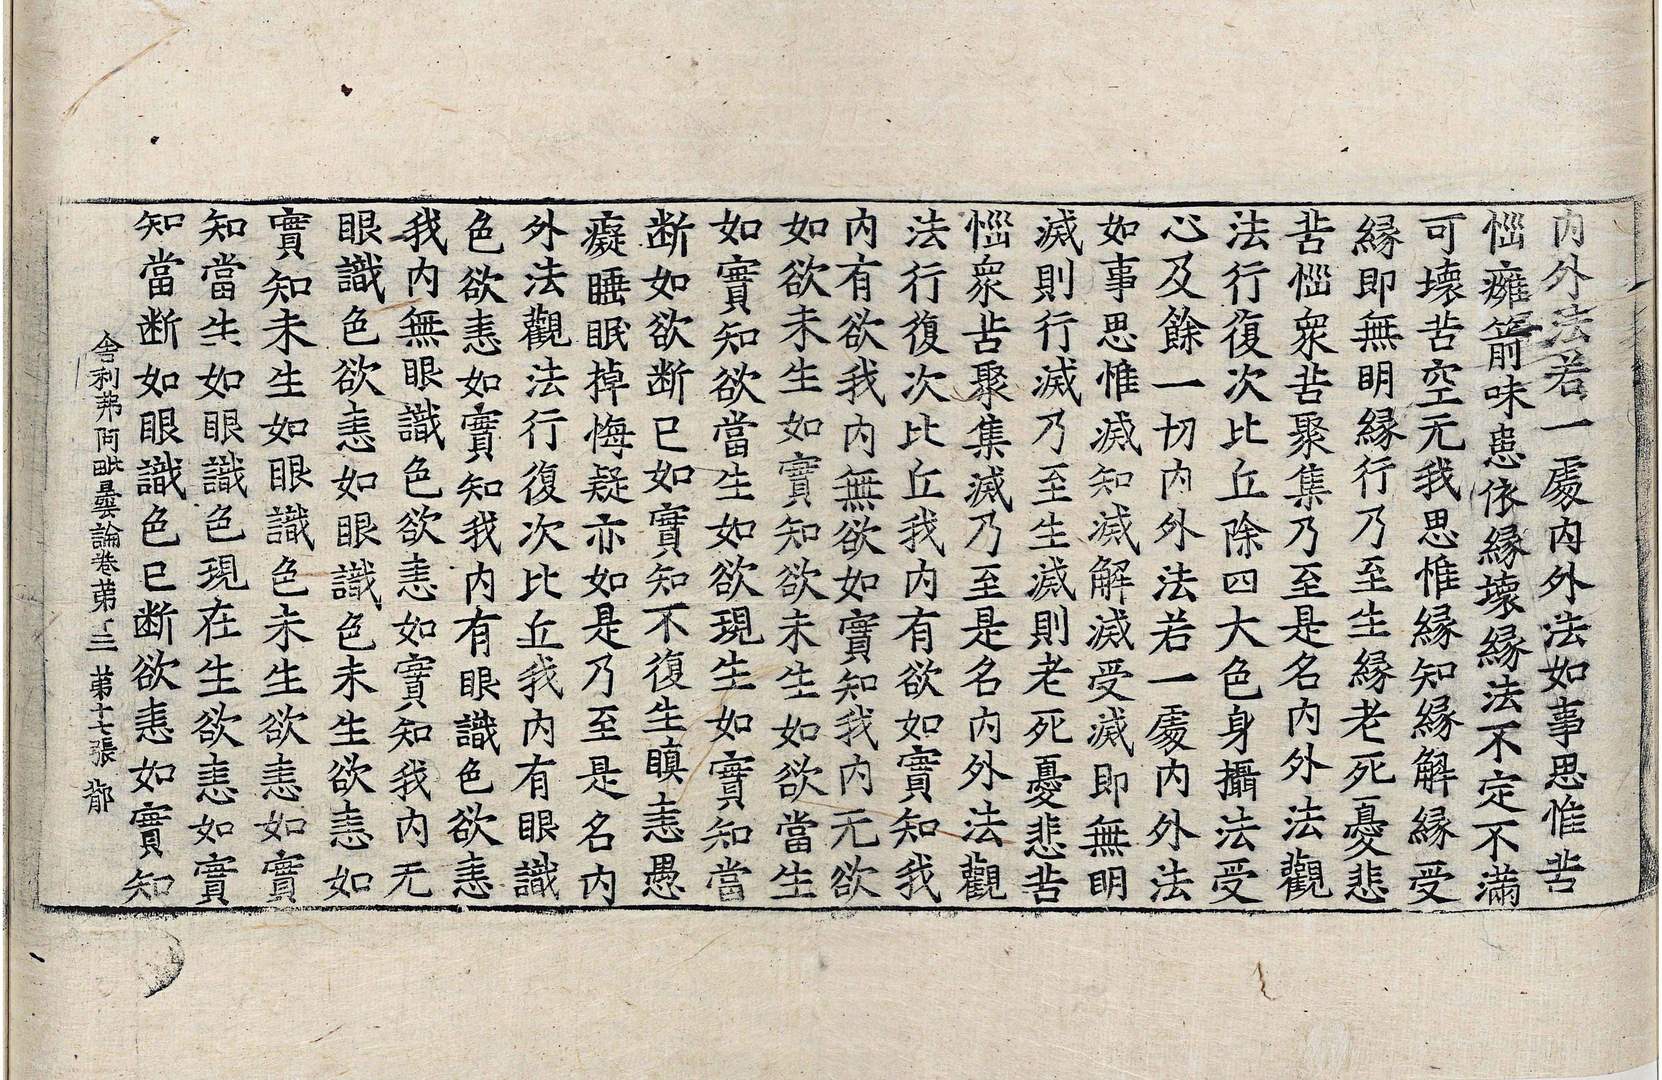 内外法若一處内外法如事思惟苦
惱癰箭味患依緣壞緣法不定不滿
可壞苦空无我思惟緣知緣解緣受
緣即無明緣行乃至生緣老死憂悲
苦惱衆苦聚集乃至是名内外法觀
法行復次比丘除四大色身攝法受
心及餘一切内外法若一處内外法
如事思惟滅知滅解滅受滅即無明
滅則行滅乃至生滅則老死憂悲苦
惱衆苦聚集滅乃至是名内外法觀
法行復次比丘我内有欲如實知我
内有欲我内無欲如實知我内无欲
如欲未生如實知欲未生如欲當生
如實知欲當生如欲現生如實知當
断如欲断已如實知不復生瞋恚愚
癡睡眠掉悔疑亦如是乃至是名内
外法觀法行復次比丘我内有眼識
色欲恚如實知我内有眼識色欲恚
我内無眼識色欲恚如實知我内无
眼識色欲恚如眼識色未生欲恚如
實知未生如眼識色未生欲恚如實
知當生如眼識色現在生欲恚如實
知當断如眼識色已断欲恚如實知
舍利弗阿毗曇論卷苐三 苐十七張